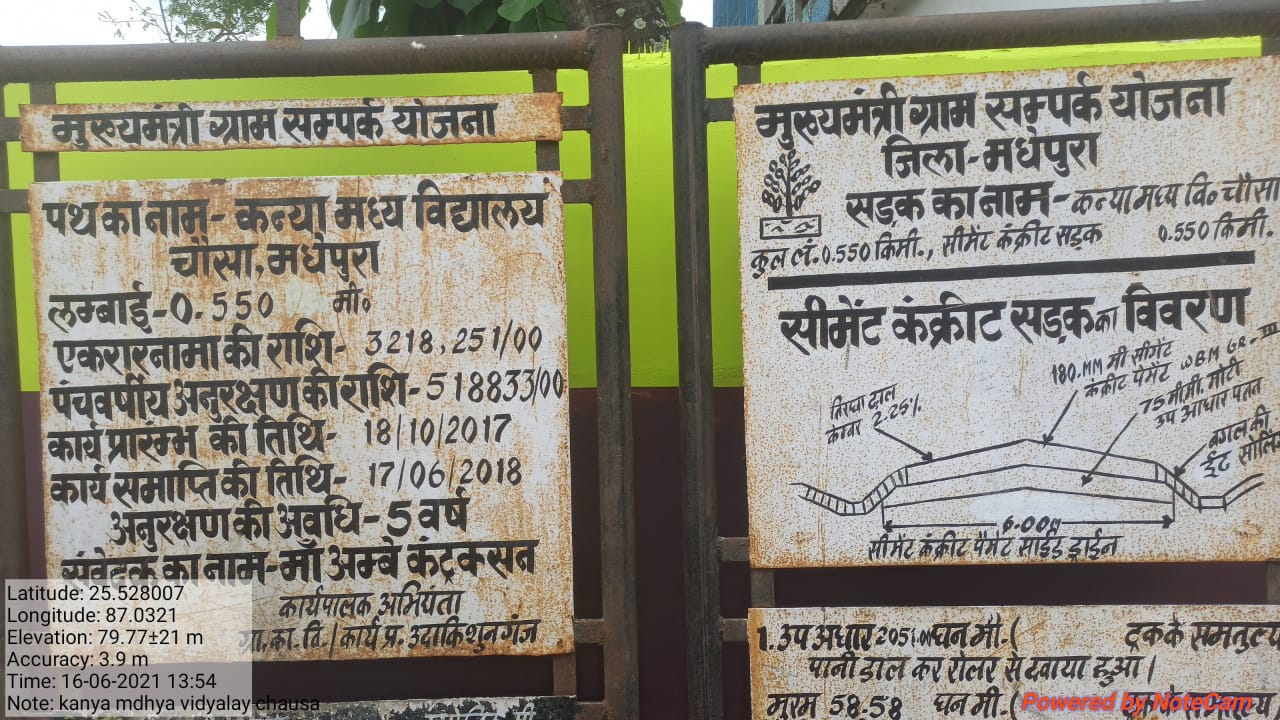 मुख्यमंत्री ग्राम सम्पर्क योजना
पथ का नाम- कन्या मध्य विद्यालय
चौसा, मधेपुरा
लम्बाई- 0.550 मी०
एकरारनामा की राशि- 3218,251/00
पंचवर्षीय अनुरक्षण की राशि- 518833/00
कार्य प्रारम्भ की तिथि- 18/10/2017
कार्य समाप्ति की तिथि- 17/06/2018
अनुरक्षण की अवधि- 5 वर्ष
संवेदक का नाम- माँ अम्बे कंट्रक्सन
कार्यपालक अभियंता
ग्रा. का. वि./ कार्य प्र. उदाकिशुनगंज
मुख्यमंत्री ग्राम सम्पर्क योजना
जिला- मधेपुरा
सड़क का नाम- कन्या मध्य वि० चौसा
कुल लं. 0.550 किमी., सीमेंट कंक्रीट सड़क 0.550 किमी.
सीमेंट कंक्रीट सड़क का विवरण
180.MM मी सीमेंट
कंक्रीट पेमेंट WBM GR-III
75 मीमी. मोटी
उप आधार परत
कैम्बर 2.25%
बगल की
ईंट
6.00M
सीमेंट कंक्रीट पैमेंट साईड ड्राईन
1. उप आधार 2051.01 घन मी. ( ट्रक के समतुल्य
पानी डाल कर रोलर से दवाया हुआ।
मुरम 58.58 घन मी. (
Latitude: 25.528007
Longitude: 87.0321
Elevation: 79.77±21 m
Accuracy: 3.9 m
Time: 16-06-2021 13:54
Note: kanya mdhya vidyalay chausa
Powered by NoteCam